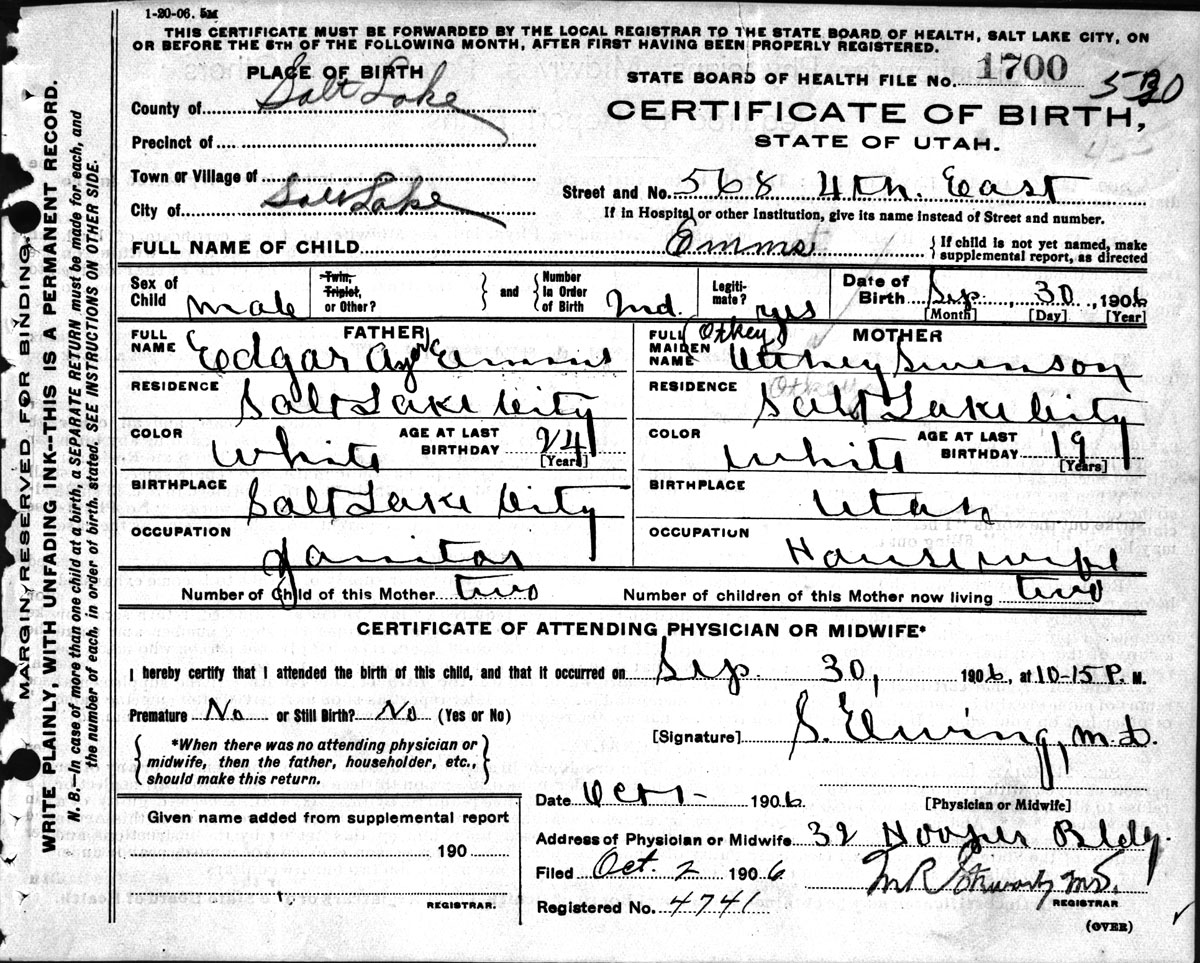 1-20-06. 5M
THIS CERTIFICATE MUST BE FORWARDED BY THE LOCAL REGISTRAR TO THE STATE BOARD OF HEALTH, SALT LAKE CITY, ON
OR BEFORE THE 5TH OF THE FOLLOWING MONTH, AFTER FIRST HAVING BEEN PROPERLY REGISTERED.
PLACE OF BIRTH
STATE BOARD OF HEALTH FILE No. 1700
County of Salt Lake
CERTIFICATE OF BIRTH,
Precinct of
STATE OF UTAH.
Town or Village of
Street and No. 568 4th. East
City of Salt Lake
If in Hospital or other Institution, give its name instead of Street and number.
FULL NAME OF CHILD Emms
{ If child is not yet named, make
supplemental report, as directed
Sex of Child male
Twin, Triplet, or Other? } and { Number In Order of Birth 2nd.
Legitimate? yes
Date of Birth Sep. 30, 1906
[Month] [Day] [Year]
FATHER
FULL NAME Edgar Emms
MOTHER
FULL MAIDEN NAME (Otkey) Swenson
RESIDENCE Salt Lake City
RESIDENCE Salt Lake City
COLOR White AGE AT LAST BIRTHDAY 24 [Years]
COLOR White AGE AT LAST BIRTHDAY 19 [Years]
BIRTHPLACE Salt Lake City
BIRTHPLACE Utah
OCCUPATION Janitor
OCCUPATION Housewife
Number of Child of this Mother two
Number of children of this Mother now living two
CERTIFICATE OF ATTENDING PHYSICIAN OR MIDWIFE*
I hereby certify that I attended the birth of this child, and that it occurred on Sep. 30, 1906, at 10-15 P. M.
Premature No or Still Birth? No (Yes or No)
{ *When there was no attending physician or
midwife, then the father, householder, etc.,
should make this return. }
[Signature] S. Ewing, M.D.
[Physician or Midwife]
Date Oct 1- 1906
Given name added from supplemental report
190
REGISTRAR.
Address of Physician or Midwife 32 Hooper Bldg.
Filed Oct. 2 1906
M R Stewart M.D.
REGISTRAR
Registered No. 4741
(OVER)
MARGIN RESERVED FOR BINDING.
WRITE PLAINLY, WITH UNFADING INK--THIS IS A PERMANENT RECORD.
N. B.—In case of more than one child at a birth, a SEPARATE RETURN must be made for each, and
the number of each, in order of birth, stated. SEE INSTRUCTIONS ON OTHER SIDE.